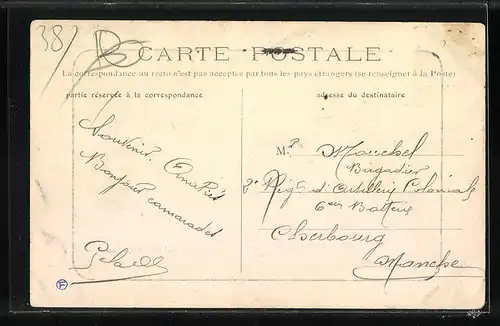 38
CARTE POSTALE
La correspondance au recto n'est pas acceptée par tous les pays étrangers (se renseigner à la Poste)
partie réservée à la correspondance
adresse du destinataire
Souvenir. Amitiés
Bonjour camarades
Mr Mouchel
Brigadier
2e Rigt d'Artillerie Coloniale
6em Batterie
Cherbourg
Manche
F